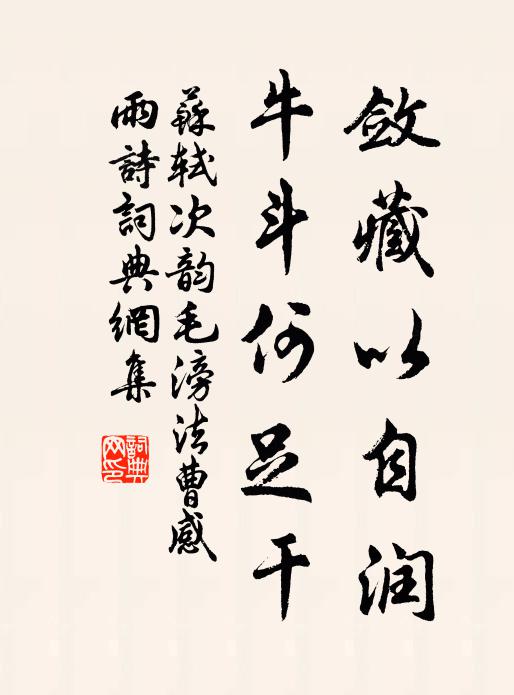 敛藏以自润
牛斗何足干
蘇轼次韵毛滂法曹感
雨詩詞典網集
詞典网印